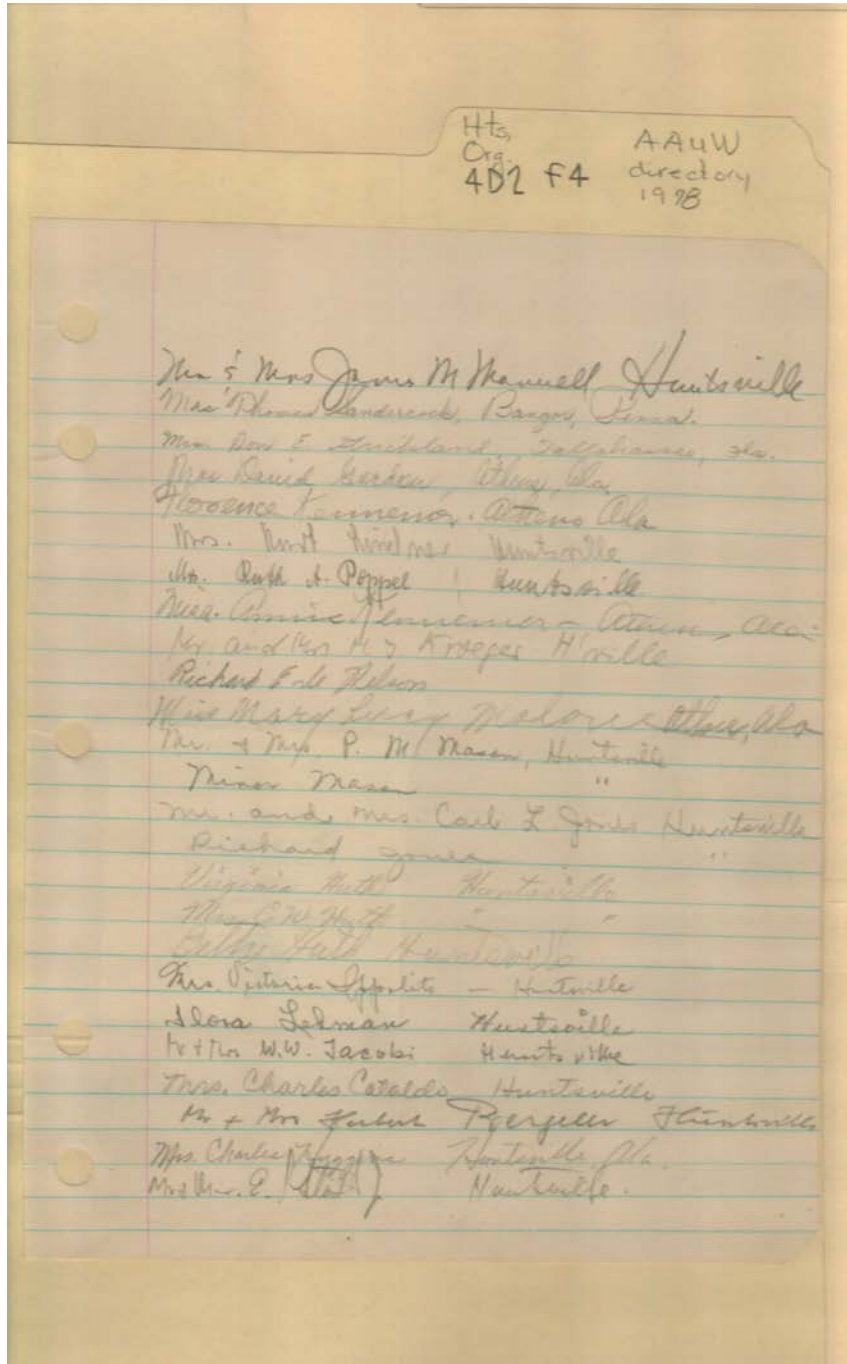 Hts,
Org.
4D2 F4
AAUW
directory
1978
Mr & Mrs James M Huntsville
Mrs Thomas Sandercock, Bangor, Penna.
Mrs Don E Strickland, Tallahassee, Fla.
Mrs David Gordon, Athens, Ala
Florence Athens Ala
Mrs. Lindner Huntsville
Ruth A. Poppel, Huntsville
Miss. Annie
Mr and Mrs H Kroeger H'ville
Richard
Miss Mary Lucy Athens, Ala
Mr. & Mrs P. M Mason, Huntsville
Minor Mason "
Mr. and Mrs. Carl L Jones Huntsville
Richard Jones "
Virginia Huth Huntsville
Mrs. C. W. Huth " "
Huth Huntsville
Mrs. Victoria Ippolito — Huntsville
Flora Lehman Huntsville
Mr & Mrs W.W. Jacobi Huntsville
Mrs. Charles Cataldo Huntsville
Mr + Mrs Herbert Huntsville
Mrs. Charles Huntsville, Ala.
E. Huntsville.